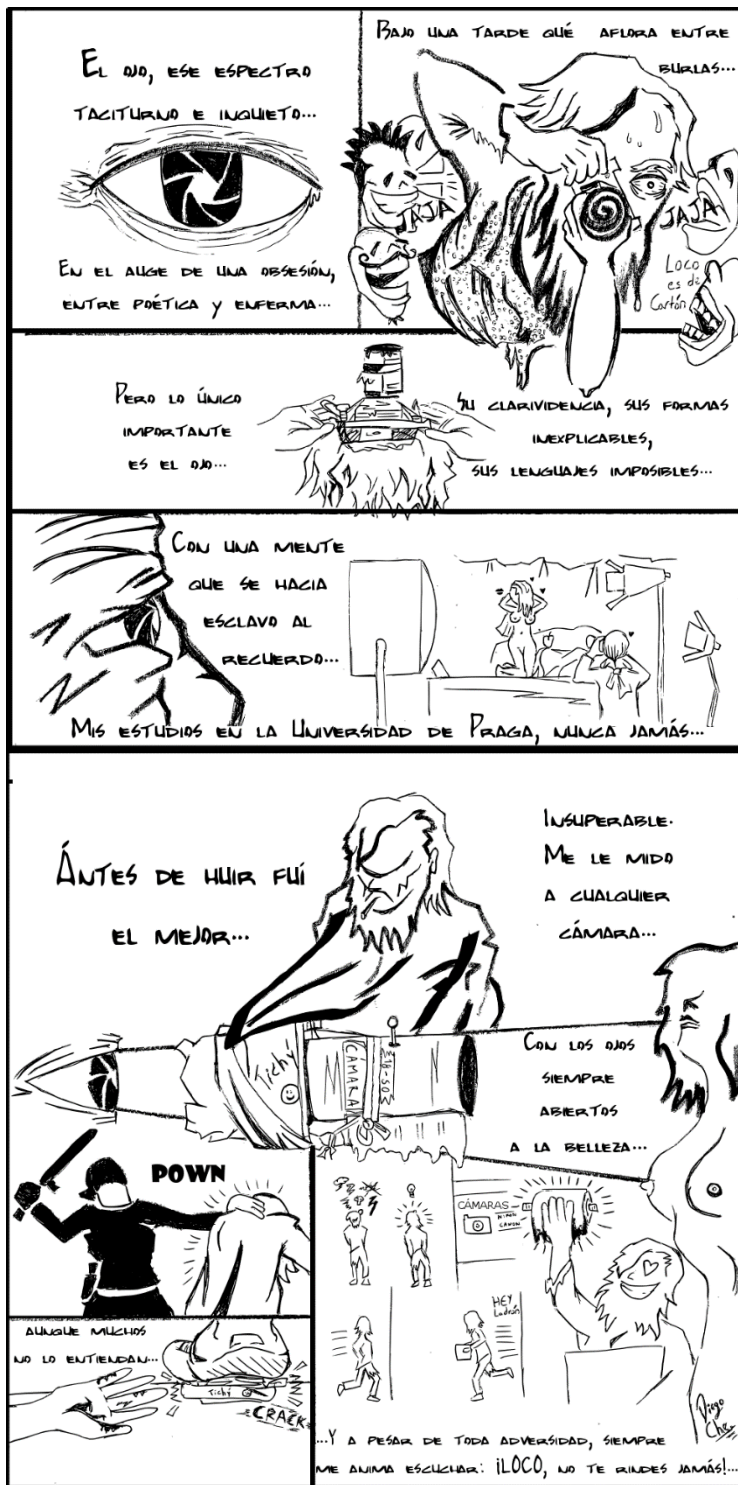 El ojo, ese espectro
taciturno e inquieto...
En el auge de una obsesión,
entre poética y enferma...
Bajo una tarde qué aflora entre
burlas...
JAJA
JAJA
Loco
es de
Cartón
Pero lo único
importante
es el ojo...
Su clarividencia, sus formas
inexplicables,
sus lenguajes imposibles...
Con una mente
que se hacia
esclavo al
recuerdo...
Mis estudios en la Universidad de Praga, nunca jamás...
Ántes de huir fuí
el mejor...
Insuperable.
Me le mido
a cualquier
cámara...
Tichý
CÁMARA
Con los ojos
siempre
abiertos
a la belleza...
POWN
CÁMARAS
CANON
HEY
Ladrón
aunque muchos
no lo entiendan...
Tichý
CRACK
...Y a pesar de toda adversidad, siempre
me anima escuchar: ¡LOCO, no te rindes jamás!...
Diego